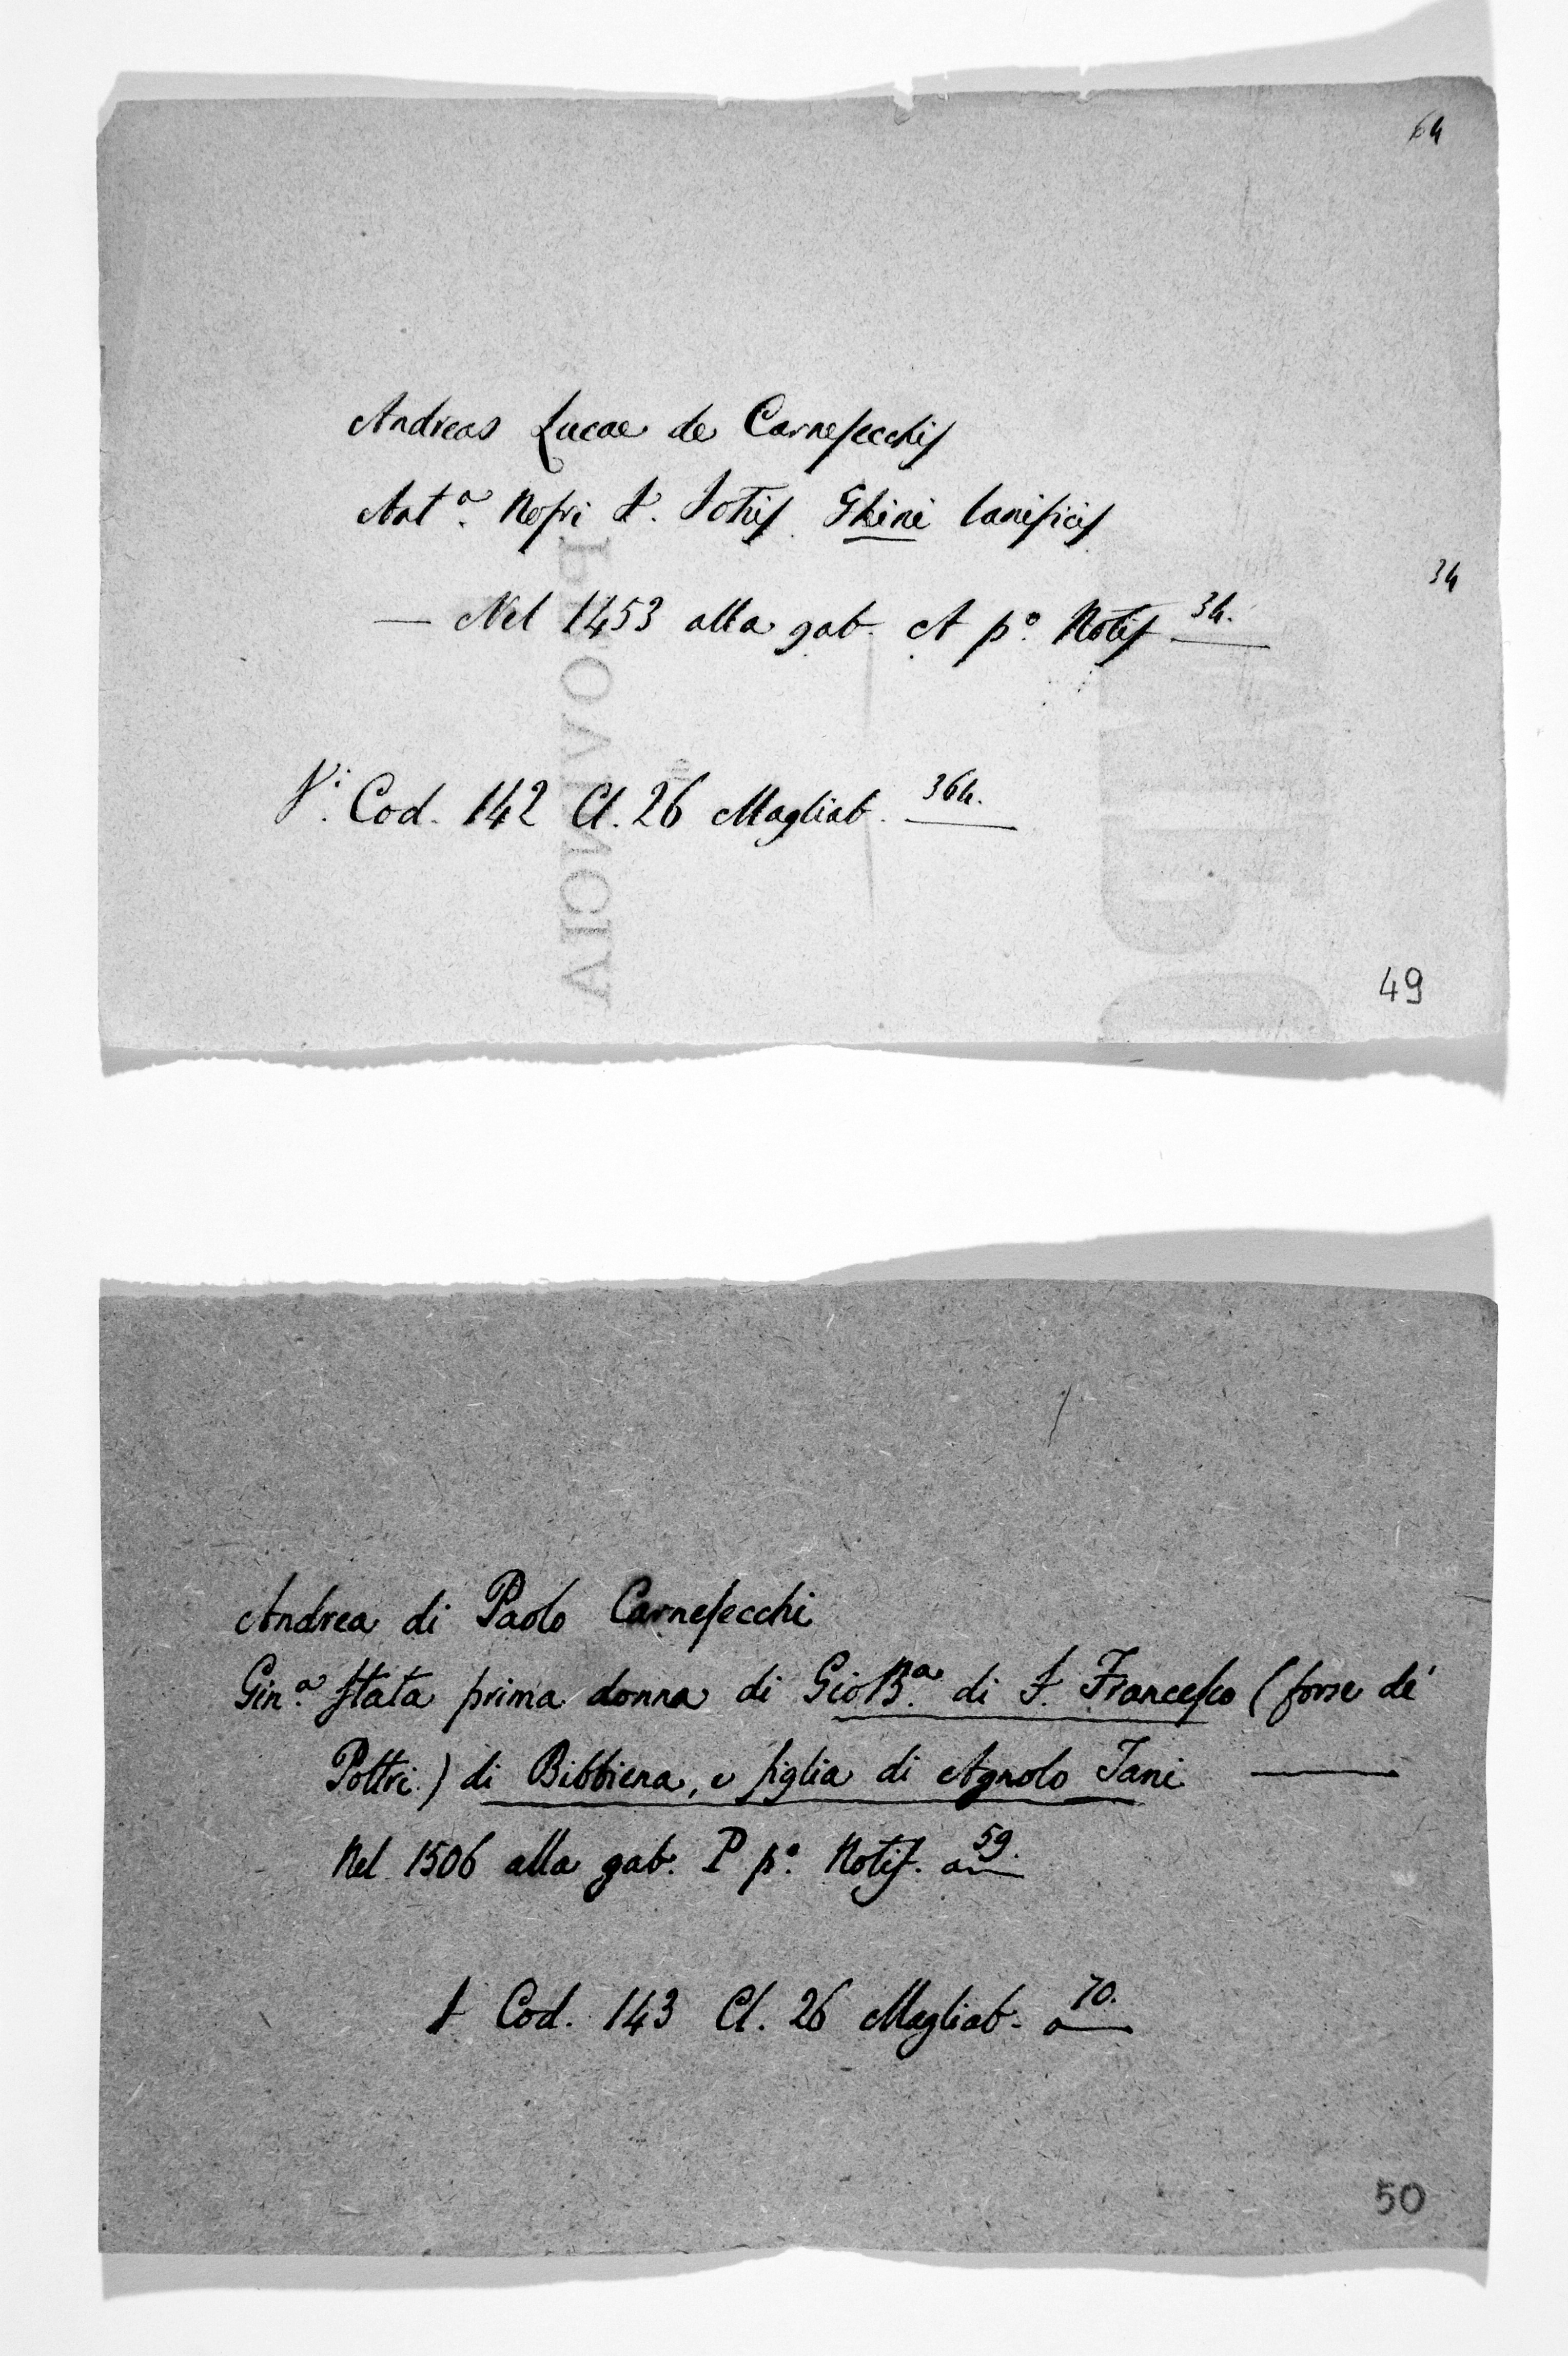 64
Andreas Lucae de Carnesecchis
Ant.ª Nofri S. Lotiis Ghini lanificis
34
— Nel 1453 alla gab. A p.º Notif 34.
V.i Cod. 142 Cl. 26 Magliab. 364.
49
Andrea di Paolo Carnesecchi
Gin.ª stata prima donna di Gio B.ª di S. Francesco (forse de'
Poltri) di Bibbiena, e figlia di Agnolo Tani
Nel 1506 alla gab. P p.º Notif. a 59.
Cod. 143 Cl. 26 Magliab. a 70.
50